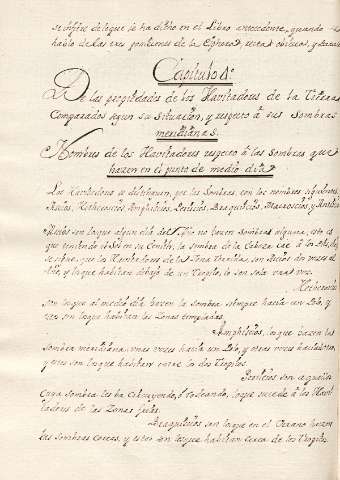 se infiere de lo que se ha dicho en el Libro antecedente, quando se
hablo de las tres posiciones de la Esphera, recta obliqua, y
Capitulo 4º
De las propiedades de los Havitadores de la Tierra
Comparados segun su Situacion, y respecto à sus Sombras
meridianas.
Nombres de los Havitadores respecto à las Sombras, que
hazen en el punto de medio dia
Los Havitadores se distinguen, por las Sombras, con los nombres siguientes
Ascios, Heteroscios, Amphiscios, Periscios,
Ascios son los que algun dia del Año no hazen Sombras alguna, esto es
que teniendo el Sol en su Zenith, la sombra de la Cabeza cae à los Pies,
se sabe, que los Havitadores de la Zona Thorrida, son Ascios dos vezes al
Año, y los que habitan debajo de un Tropico, lo son sola una vez.
Heteroscios
son los que al medio dia hazen la Sombra siempre hacia un Polo, y
son los que habitan las Zonas templadas.
Amphiscios, los que hazen las
Sombras meridianas, unas vezes hacia un Polo, y otras vezes hacia el otro,
y estos son los que habitan entre los dos Tropicos.
Periscios son aquellos
Cuya Sombra les ba circuyendo, ò rodeando, lo que sucede à los Havi-
tadores de las Zonas frias.
son los que en el Verano hazen
las Sombras cortas, y estos son los que habitan cerca de los Tropicos.